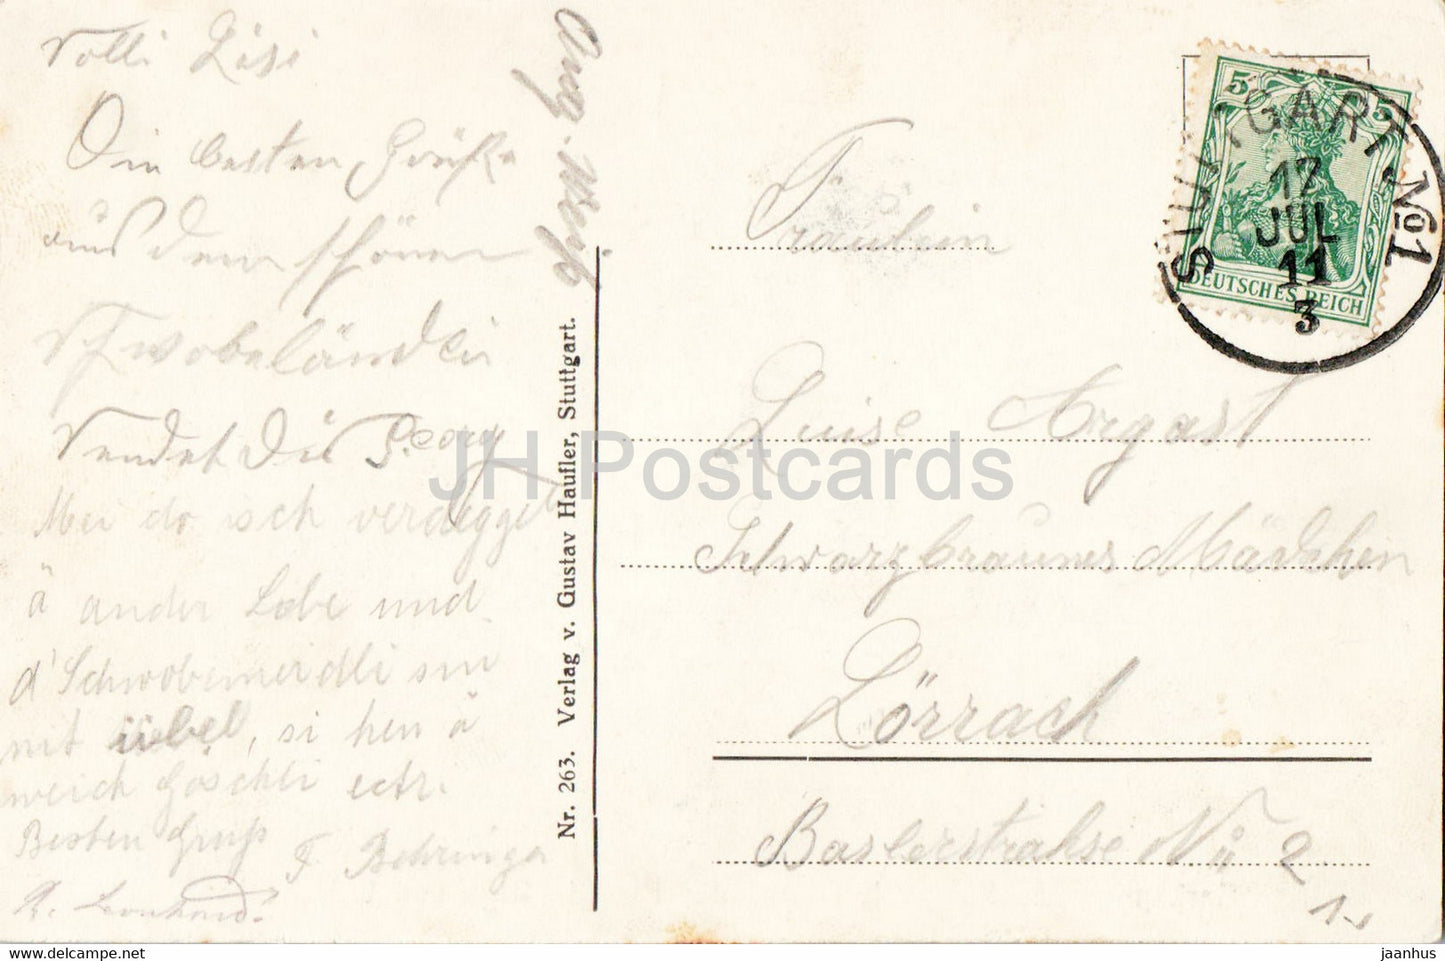 Lisi
besten Grüße
aus dem schönen
Schwobeländle
sendet Dir Georg
Mei do isch verdeggel
ä ander Läbe und
d'Schwobemeidli sin
nit übel, si hen ä
weich Goschli ectr.
Besten Gruß
F. Behringer
Nr. 263. Verlag v. Gustav Haufler, Stuttgart.
5 5
DEUTSCHES REICH
STUTTGART No 1
12
JUL
11
3
Fräulein
Luise Argast
Schwarzbraunes Mädchen
Lörrach
Baslerstrahse No 2
JH Postcards
www.delcampe.net
jaanhus